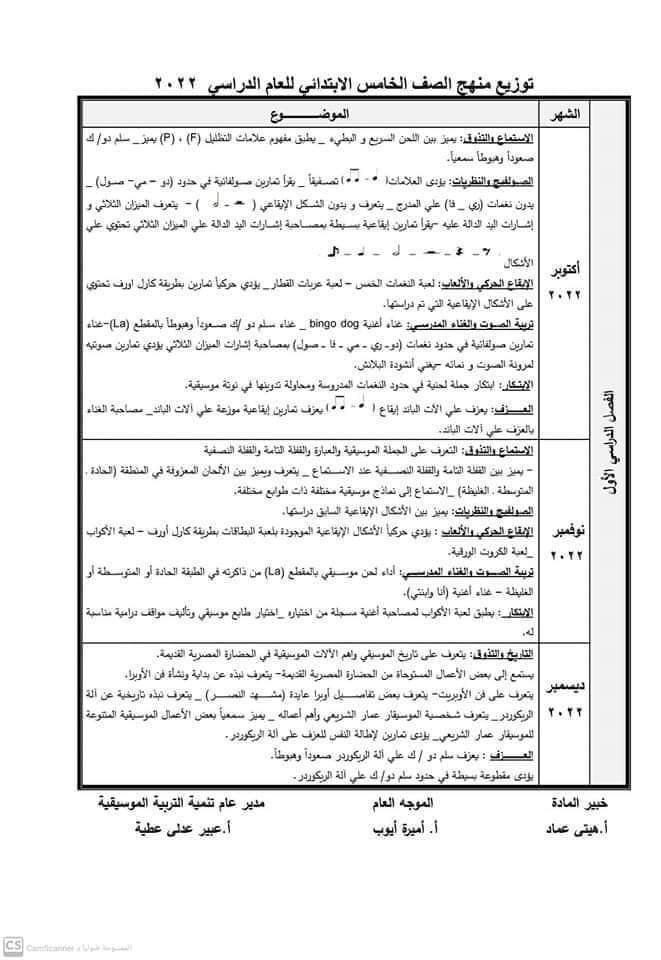 توزيع منهج الصف الخامس الابتدائي للعام الدراسي ٢٠٢٢
الشهر
الموضـــــــوع
الفصل الدراسي الأول
أكتوبر
٢٠٢٢
الاستماع والتذوق: يميز بين اللحن السريع و البطيء _ يطبق مفهوم علامات التظليل (F) ، (P) يميز_ سلم دو/ ك
صعوداً وهبوطاً سمعياً.
الصولفيج والنظريات: يؤدى العلامات( ) تصفيقاً _ يقرأ تمارين صولفائية في حدود (دو – مي- صول) _
يدون نغمات (ري _ فا) علي المدرج _ يتعرف و يدون الشكل الإيقاعي ( - ) – يتعرف الميزان الثلاثي و
إشارات اليد الدالة عليه –يقرأ تمارين إيقاعية بسيطة بمصاحبة إشارات اليد الدالة علي الميزان الثلاثي تحتوي علي
الأشكال
الإيقاع الحركي والألعاب: لعبة النغمات الخمس – لعبة عربات القطار_ يؤدي حركياً تمارين بطريقة كارل اورف تحتوي
على الأشكال الإيقاعية التي تم دراستها.
تربية الصوت والغناء المدرسي: غناء أغنية bingo dog _ غناء سلم دو /ك صعوداً وهبوطاً بالمقطع (La)–غناء
تمارين صولفائية في حدود نغمات (دو- ري – مي - فا – صول) بمصاحبة إشارات الميزان الثلاثي يؤدي تمارين صوتيه
لمرونة الصوت و نمائه –يغني أنشودة البلانش.
الابتكار: ابتكار جملة لحنية في حدود النغمات المدروسة ومحاولة تدوينها في نوتة موسيقية.
العـــزف: يعزف علي الآت الباند إيقاع ( ) يعزف تمارين إيقاعية موزعة علي آلات الباند_ مصاحبة الغناء
بالعزف علي آلات الباند.
نوفمبر
٢٠٢٢
الاستماع والتذوق: التعرف على الجملة الموسيقية والعبارة والقفلة التامة والقفلة النصفية
– يميز بين القفلة التامة والقفلة النصفية عند الاستماع _ يتعرف ويميز بين الألحان المعزوفة في المنطقة (الحادة .
المتوسطة . الغليظة) _الاستماع إلى نماذج موسيقية مختلفة ذات طوابع مختلفة.
الصولفيج والنظريات: يميز بين الأشكال الإيقاعية السابق دراستها.
الإيقاع الحركي والألعاب : يؤدي حركياً الأشكال الإيقاعية الموجودة بلعبة البطاقات بطريقة كارل أورف – لعبة الأكواب
_لعبة الكروت الورقية.
تربية الصوت والغناء المدرسي: أداء لحن موسيقي بالمقطع (La) من ذاكرته في الطبقة الحادة أو المتوسطة أو
الغليظة – غناء أغنية (أنا وابنتي).
الابتكار: يطبق لعبة الأكواب لمصاحبة أغنية مسجلة من اختياره _اختيار طابع موسيقي وتأليف مواقف درامية مناسبة
له.
ديسمبر
٢٠٢٢
التاريخ والتذوق: يتعرف على تاريخ الموسيقي واهم الآلات الموسيقية في الحضارة المصرية القديمة.
يستمع إلى بعض الأعمال المستوحاة من الحضارة المصرية القديمة– يتعرف نبذه عن بداية ونشأة فن الأوبرا.
يتعرف على فن الأوبريت– يتعرف بعض تفاصيل أوبرا عايدة (مشهد النصر) _ يتعرف نبذه تاريخية عن آلة
الريكوردر_ يتعرف شخصية الموسيقار عمار الشريعي وأهم أعماله _ يميز سمعياً بعض الأعمال الموسيقية المتنوعة
للموسيقار عمار الشريعي_ يؤدى تمارين لإطالة النفس للعزف على آلة الريكوردر.
العـــزف : يعزف سلم دو / ك علي آلة الريكوردر صعوداً وهبوطاً.
يؤدى مقطوعة بسيطة في حدود سلم دو/ ك علي آلة الريكوردر.
خبير المادة
الموجه العام
مدير عام تنمية التربية الموسيقية
أ.هيتى عماد
أ. أميرة أيوب
أ.عبير عدلى عطية
CS CamScanner الممسوحة ضوئيا بـ